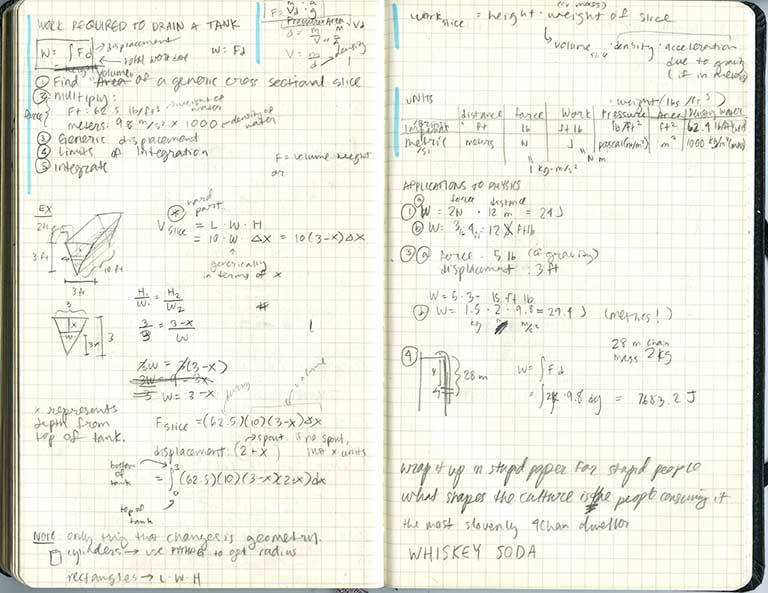 WORK REQUIRED TO DRAIN A TANK
W = ∫ F d → displacement
→ total work done
W = Fd
① Find Area of a generic cross sectional slice
volume
② multiply:
Force
Ft: 62.5 lb/ft³ ← weight of water
meters: 9.8 m/s² × 1000 ← density of water
③ Generic displacement
④ Limits of Integration
⑤ Integrate
F = volume · weight
or
density
EX
2ft
3 ft
10 ft
3 ft
* hard part
V slice = L · W · H
= 10 · W · Δx = 10(3-x)Δx
generically in terms of x
H₁/W₁ = H₂/W₂
3/3 = (3-x)/W
3W = 3(3-x)
3W = 9 - 3x
W = 3-x
3
x
W
3
x represents
depth from
top of tank.
density
volume
F slice = (62.5)(10)(3-x)Δx
displacement: (2+x)
→ spout. if no spout,
just x units
bottom of tank
= ∫₀³ (62.5)(10)(3-x)(2+x)dx
top of tank
NOTE only thing that changes is geometry.
cylinders → use PYTHAG to get radius
rectangles → L · W · H
(or mass)
work slice = height · weight of slice
→ volume slice · density · acceleration
due to gravity
(if in meters)
UNITS
weight (lbs/ft³)
distance force Work Pressure Area Density water
ft lb ft lb lb/ft² ft² 62.4 lb/ft³
metric/SI meters N J pascal (N/m²) m² 1000 kg/m³
N m
1 kg·m/s²
APPLICATIONS TO PHYSICS
force distance
① ⓐ W = 2N · 12 m = 24 J
ⓑ W = 3 lb 4 ft = 12 ftlb
③ ⓐ force · 5 lb (gravity)
displacement : 3 ft
W = 5·3 = 15 ft lb
ⓑ W = 1.5 · 2 · 9.8 = 29.4 J (metres!)
kg m m/s²
28 m chain
mass 2kg
④ 28 m
W = ∫ F d
= ∫ 2 · 9.8 dy = 7683.2 J
wrap it up in stupid paper for stupid people
what shapes the culture is the people consuming it
the most slovenly 4chan dweller
WHISKEY SODA